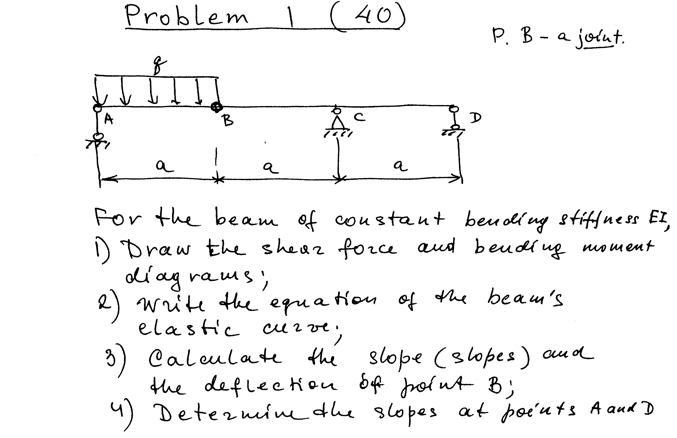 Problem 1 (40)
P. B - a joint.
q
A B C D
a a a
For the beam of constant bending stiffness EI,
1) Draw the shear force and bending moment
diagrams;
2) Write the equation of the beam's
elastic curve;
3) Calculate the slope (slopes) and
the deflection of point B;
4) Determine the slopes at points A and D